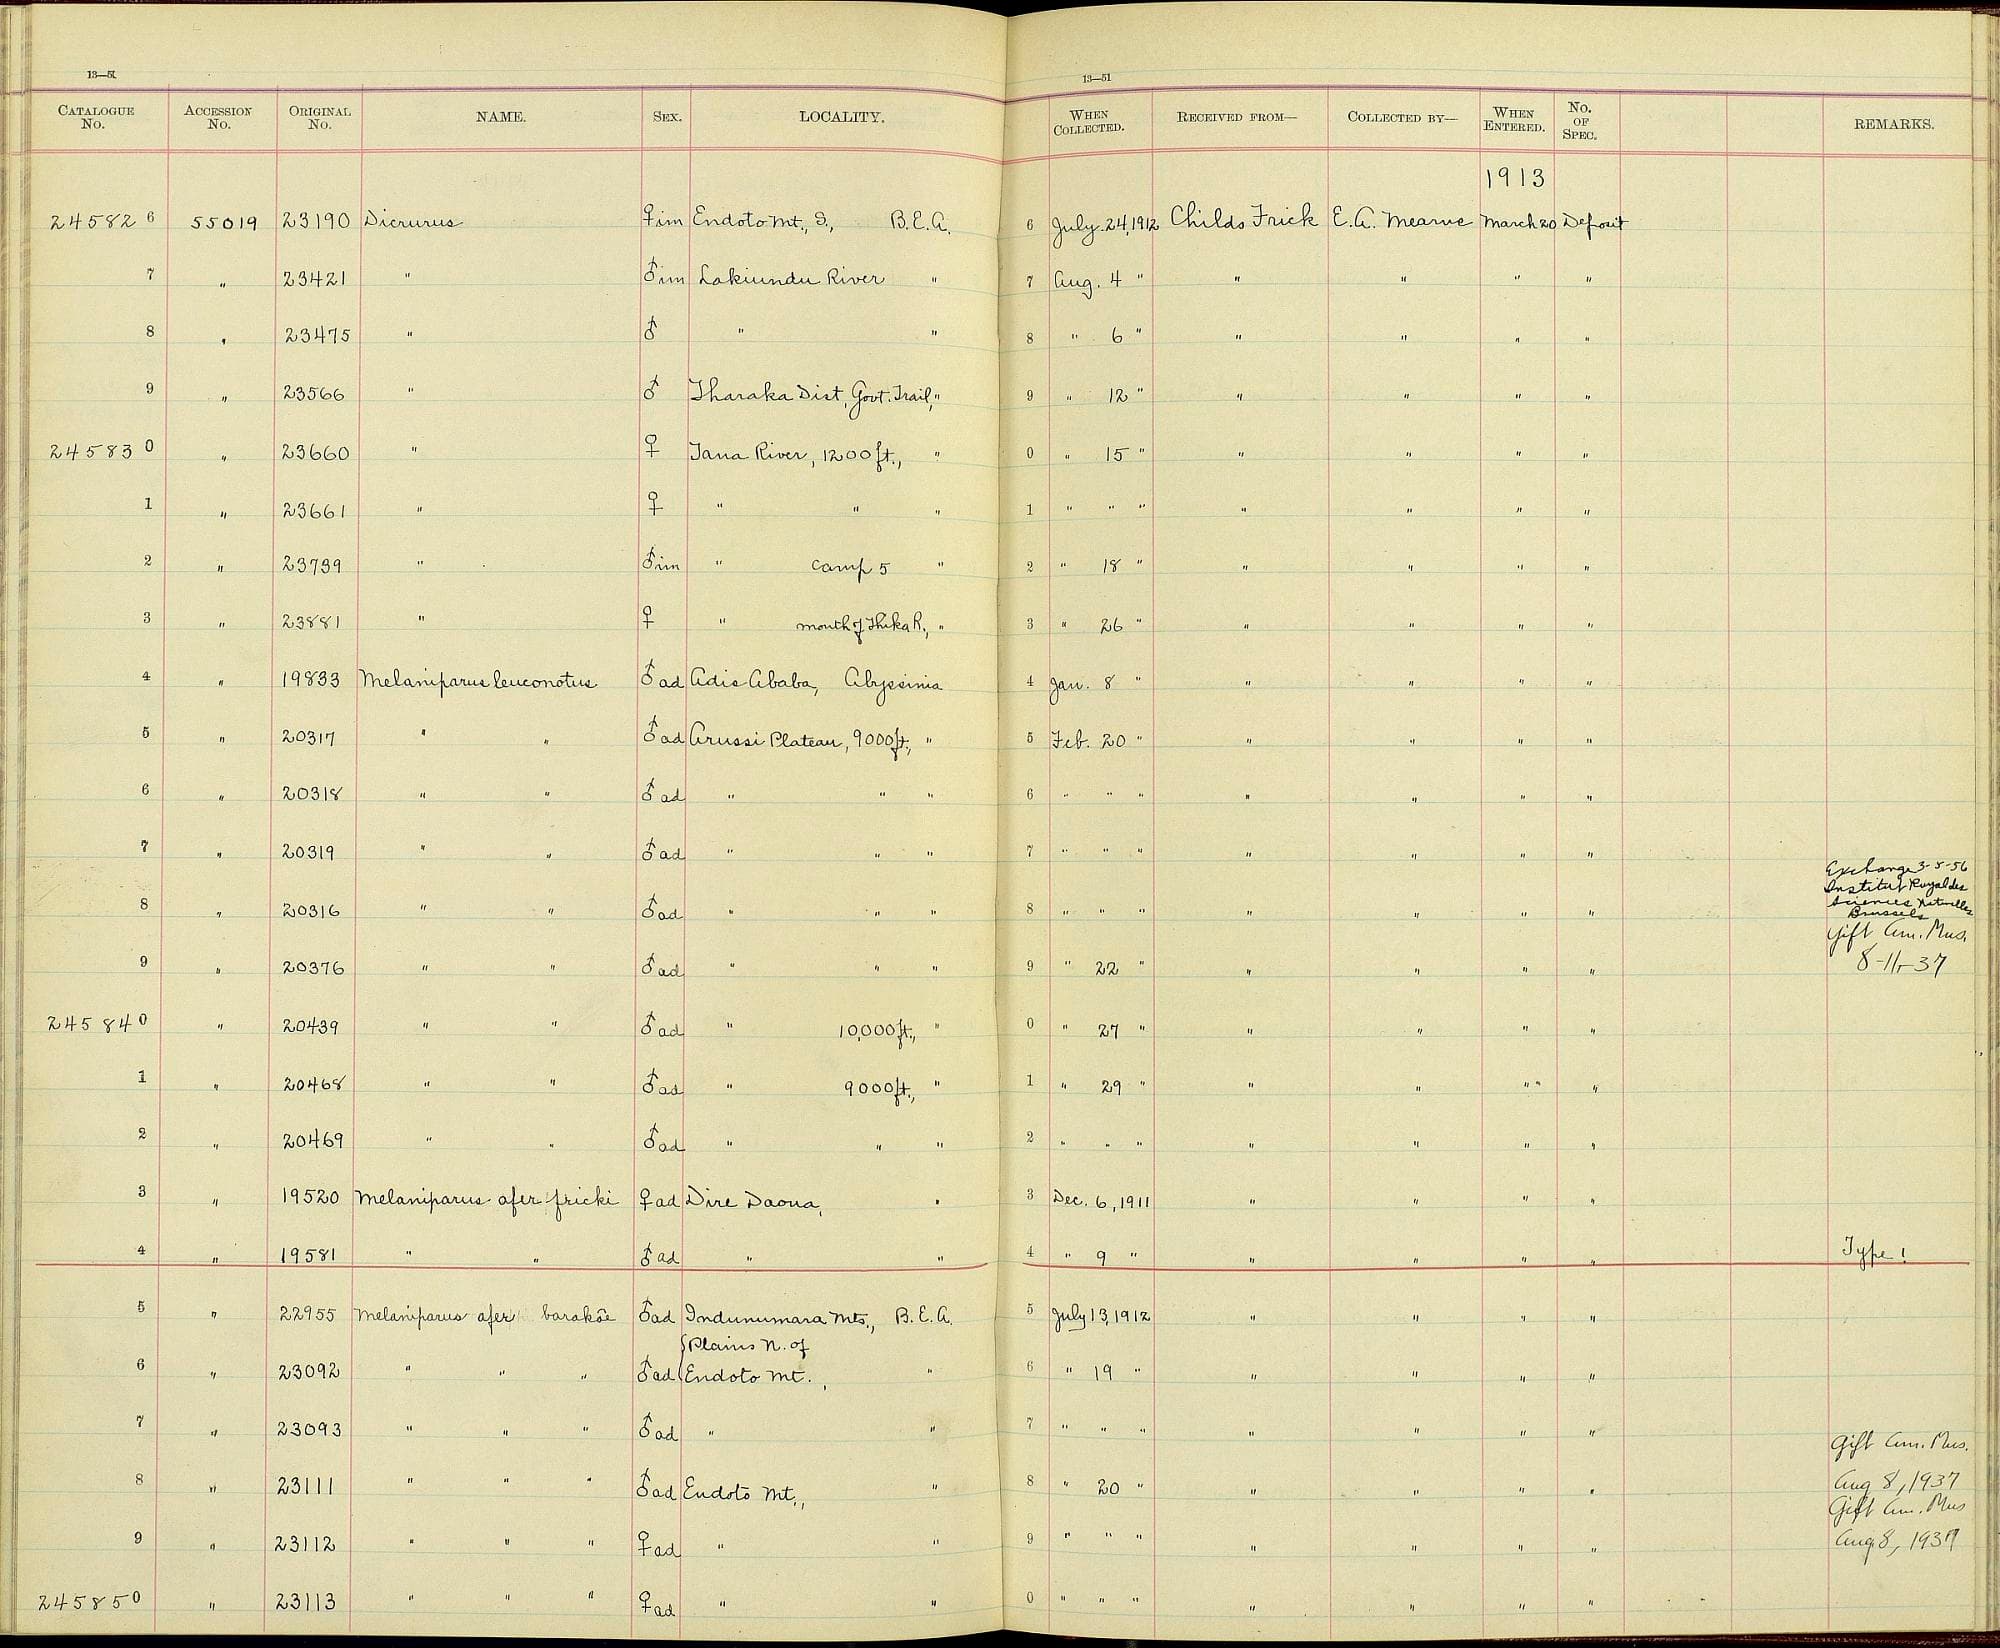 13—51 13—51
CATALOGUE No. ACCESSION No. ORIGINAL No. NAME. SEX. LOCALITY. WHEN COLLECTED. RECEIVED FROM— COLLECTED BY— WHEN ENTERED. No. OF SPEC. REMARKS.
1913
24582 6 55019 23190 Dicrurus ♀im Endoto Mt., S., B.E.A. 6 July 24, 1912 Childs Frick E.A. Mearns March 20 Deposit
7 " 23421 " ♂im Lakiundu River " 7 Aug. 4 " " " " "
8 " 23475 " ♂ " " 8 " 6 " " " " "
9 " 23566 " ♂ Tharaka Dist, Govt. Trail, " 9 " 12 " " " " "
24583 0 " 23660 " ♀ Tana River, 1200 ft., " 0 " 15 " " " " "
1 " 23661 " ♀ " " " 1 " " " " " " "
2 " 23739 " ♂im " Camp 5 " 2 " 18 " " " " "
3 " 23881 " ♀ " mouth of Thika R., " 3 " 26 " " " " "
4 " 19833 Melaniparus leuconotus ♂ad Adis Ababa, Abyssinia 4 Jan. 8 " " " " "
5 " 20317 " " ♂ad Arussi Plateau, 9000 ft., " 5 Feb. 20 " " " " "
6 " 20318 " " ♂ad " " " 6 " " " " " " "
7 " 20319 " " ♂ad " " " 7 " " " " " " "
Exchange 3-5-56
Institut Royal des
Sciences Naturelles
Brussels
8 " 20316 " " ♂ad " " " 8 " " " " " " "
Gift Am. Mus.
9 " 20376 " " ♂ad " " " 9 " 22 " " " " " 8-11-37
24584 0 " 20439 " " ♂ad " 10,000 ft., " 0 " 27 " " " " "
1 " 20468 " " ♂ad " 9000 ft., " 1 " 29 " " " " " "
2 " 20469 " " ♂ad " " " 2 " " " " " " "
3 " 19520 Melaniparus afer fricki ♀ad Dire Daoua, " 3 Dec. 6, 1911 " " " "
4 " 19581 " " ♂ad " " 4 " 9 " " " " " Type!
5 " 22955 Melaniparus afer barakæ ♂ad Indunumara Mts., B.E.A. 5 July 13, 1912 " " " "
{Plains N. of
6 " 23092 " " " ♂ad Endoto Mt., " 6 " 19 " " " " "
7 " 23093 " " " ♂ad " " 7 " " " " " " "
Gift Am. Mus.
8 " 23111 " " " ♂ad Endoto Mt., " 8 " 20 " " " " " Aug 8, 1937
Gift Am. Mus
9 " 23112 " " " ♀ad " " 9 " " " " " " " Aug. 8, 1937
24585 0 " 23113 " " " ♀ad " " 0 " " " " " " "